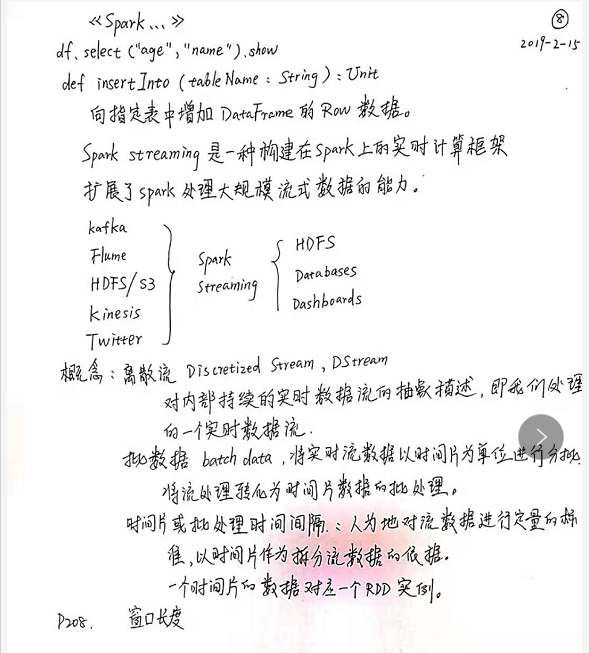 《Spark...》
⑧
2019-2-15
df.select("age","name").show
def insertInto(tableName: String): Unit
向指定表中增加 DataFrame 的 Row 数据。
Spark streaming 是一种构建在Spark上的实时计算框架
扩展了spark 处理大规模流式数据的能力.
kafka
Flume
HDFS/S3
Kinesis
Twitter
Spark
Streaming
HDFS
Databases
Dashboards
概念: 离散流 Discretized Stream, DStream
对内部持续的实时数据流的抽象描述, 即我们处理
的一个实时数据流.
批数据 batch data, 将实时流数据以时间片为单位进行分批.
将流处理转化为时间片数据的批处理。
时间片或批处理时间间隔: 人为地对流数据进行定量的标
准, 以时间片作为拆分流数据的依据.
一个时间片的数据对应一个 RDD 实例。
P208. 窗口长度